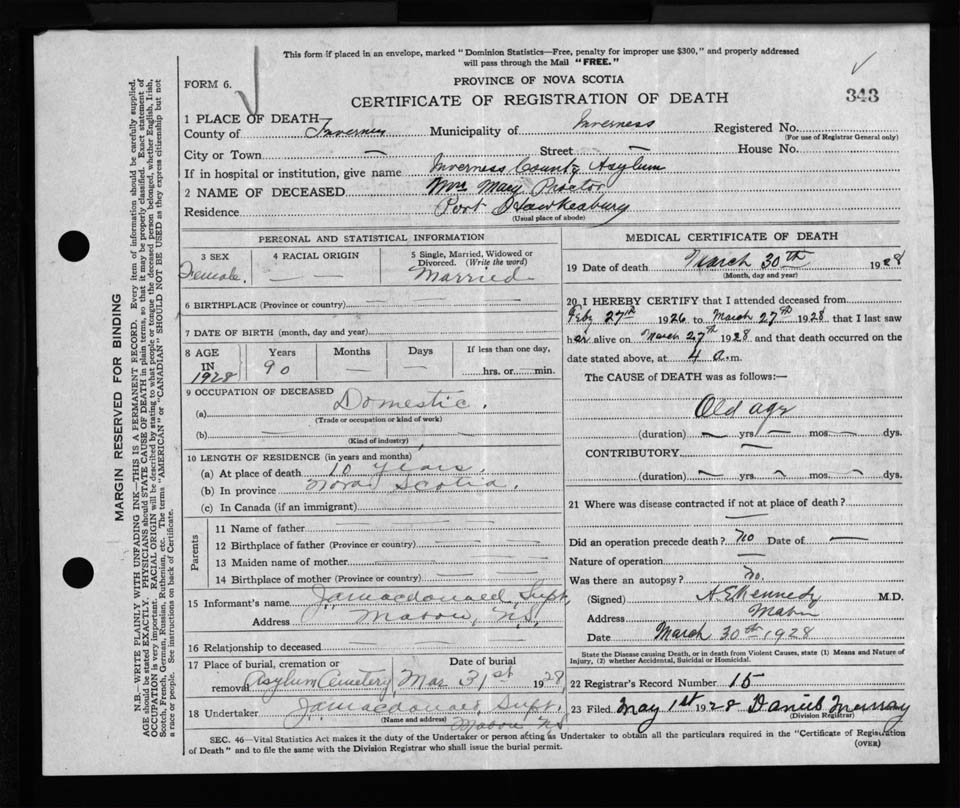 This form if placed in an envelope, marked "Dominion Statistics—Free, penalty for improper use $300," and properly addressed
will pass through the Mail "FREE."
FORM 6.
PROVINCE OF NOVA SCOTIA
CERTIFICATE OF REGISTRATION OF DEATH
343
1 PLACE OF DEATH
County of Inverness Municipality of Inverness Registered No.
(For use of Registrar General only)
City or Town — Street — House No.
If in hospital or institution, give name Inverness County Asylum
2 NAME OF DECEASED Mrs Mary Proctor
Residence Port Hawkesbury
(Usual place of abode)
PERSONAL AND STATISTICAL INFORMATION
3 SEX
Female.
4 RACIAL ORIGIN
— —
5 Single, Married, Widowed or
Divorced. (Write the word)
Married
6 BIRTHPLACE (Province or country) — —
7 DATE OF BIRTH (month, day and year) —
8 AGE
IN
1928
Years
90
Months
—
Days
—
If less than one day,
hrs. or — min.
9 OCCUPATION OF DECEASED
(a) Domestic.
(Trade or occupation or kind of work)
(b) —
(Kind of industry)
10 LENGTH OF RESIDENCE (in years and months)
(a) At place of death 10 years.
(b) In province Nova Scotia.
(c) In Canada (if an immigrant) — —
Parents
11 Name of father — — —
12 Birthplace of father (Province or country) — —
13 Maiden name of mother — — —
14 Birthplace of mother (Province or country) — — —
15 Informant's name J.A. Macdonald Supt,
Address Mabou, N.S.
16 Relationship to deceased — —
17 Place of burial, cremation or
removal Asylum Cemetery
Date of burial
Mar 31st 1928,
18 Undertaker J.A. Macdonald Supt.
(Name and address)
Mabou N.S
MEDICAL CERTIFICATE OF DEATH
19 Date of death March 30th 1928
(Month, day and year)
20 I HEREBY CERTIFY that I attended deceased from
Feby 27th 1926 to March 27th 1928 that I last saw
her alive on March 27th 1928 and that death occurred on the
date stated above, at 4 a.m.
The CAUSE of DEATH was as follows:—
Old age
(duration) — yrs. — mos. — dys.
CONTRIBUTORY —
(duration) — yrs. — mos. — dys.
21 Where was disease contracted if not at place of death?
—
Did an operation precede death? No Date of —
Nature of operation —
Was there an autopsy? No.
(Signed) A E Kennedy M.D.
Address Mabou
Date March 30th 1928
State the Disease causing Death, or in death from Violent Causes, state (1) Means and Nature of
Injury, (2) whether Accidental, Suicidal or Homicidal.
22 Registrar's Record Number 15
23 Filed May 1st 1928 Daniel Murray
(Division Registrar)
SEC. 46—Vital Statistics Act makes it the duty of the Undertaker or person acting as Undertaker to obtain all the particulars required in the "Certificate of Registration
of Death" and to file the same with the Division Registrar who shall issue the burial permit.
(OVER)
MARGIN RESERVED FOR BINDING
N.B.—WRITE PLAINLY WITH UNFADING INK—THIS IS A PERMANENT RECORD. Every item of information should be carefully supplied.
AGE should be stated EXACTLY. PHYSICIANS should STATE CAUSE OF DEATH in plain terms, so that it may be properly classified. Exact statement of
OCCUPATION is very important. RACIAL ORIGIN will be described by stating to what people or tongue the deceased person belonged, whether English, Irish,
Scotch, French, German, Russian, Ruthenian, etc. The terms "AMERICAN" or "CANADIAN" SHOULD NOT BE USED as they express citizenship but not
a race or people. See instructions on back of Certificate.